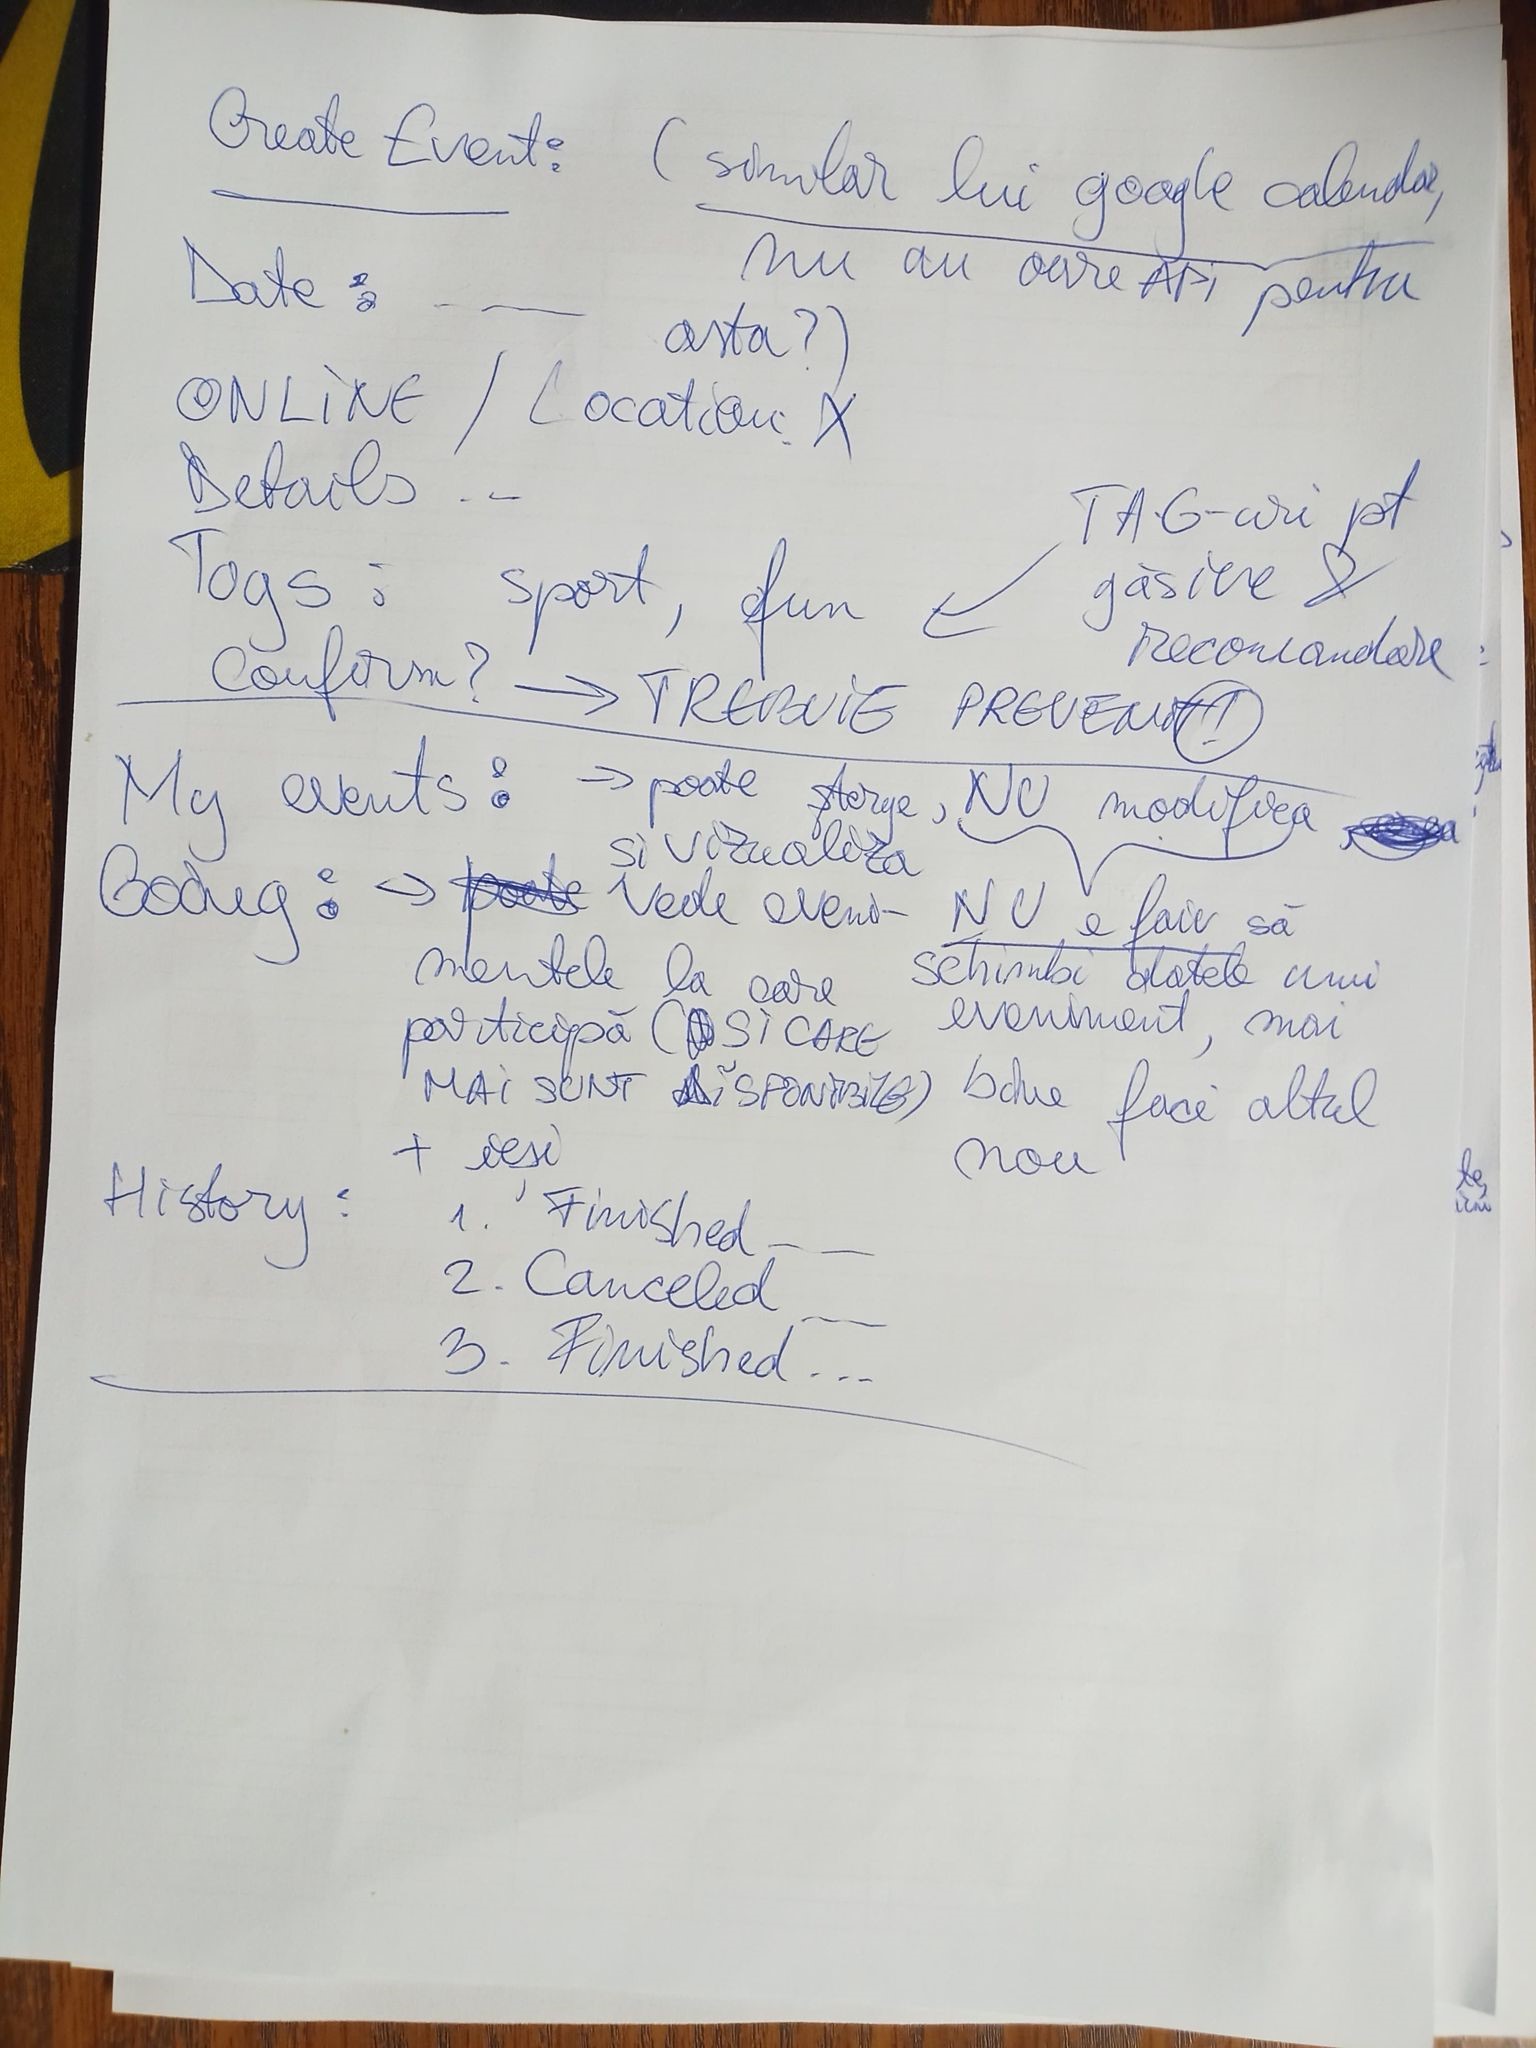 Create Event: (similar lui google calendar,
nu au oare API pentru
asta?)
Date: __ __
ONLINE / Location: X
Details ...
TAG-uri pt
găsire &
recomandare
Tags: sport, fun
Confirm? → TREBUIE PREVENIT!
My events: → poate șterge, NU modifica
si vizualiza
NU e fair să
schimbi datele unui
eveniment, mai
bine faci altul
nou
→ vede eveni-
mentele la care
participă (SI CARE
MAI SUNT DISPONIBILE)
+ ieși
History: 1. Finished __ __
2. Canceled __ __
3. Finished ...